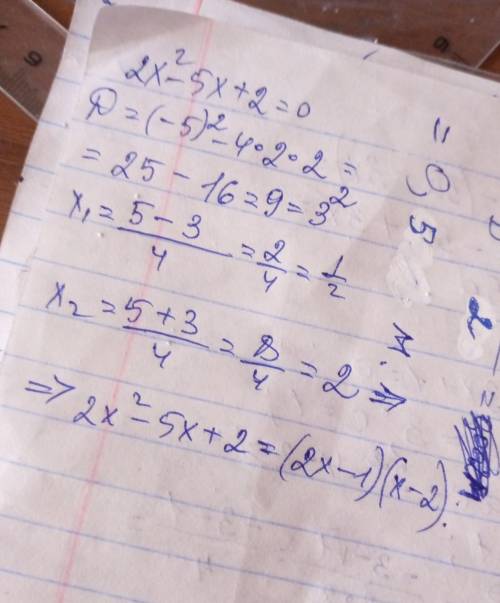 2x²-5x+2=0
D=(-5)²-4·2·2=
=25-16=9=3²
x₁=(5-3)/4=2/4=1/2
x₂=(5+3)/4=8/4=2⇒
⇒2x²-5x+2=(2x-1)(x-2).